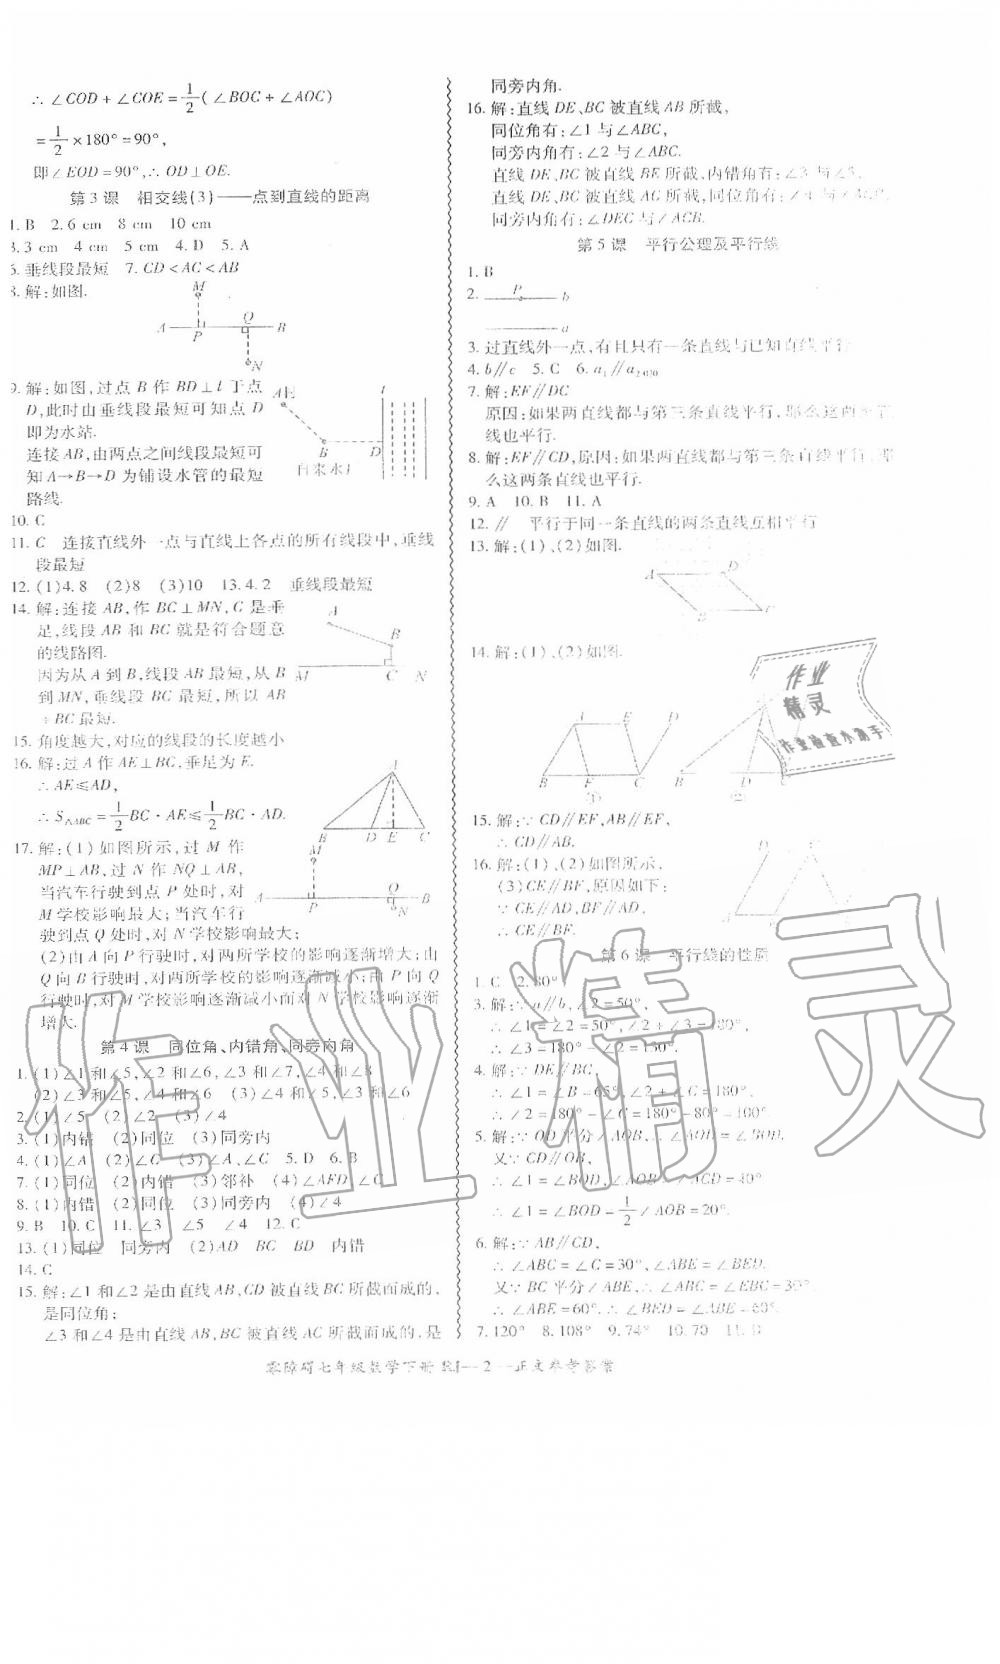 ∴∠COD+∠COE=1/2(∠BOC+∠AOC)
=1/2×180°=90°,
即∠EOD=90°,∴OD⊥OE.
第3课 相交线(3)——点到直线的距离
1.B 2.6 cm 8 cm 10 cm
3.3 cm 4 cm 5 cm 4.D 5.A
6.垂线段最短 7.CD<AC<AB
8.解:如图.
M
A P Q B
N
9.解:如图,过点B作BD⊥l于点
D,此时由垂线段最短可知点D
即为水站.
连接AB,由两点之间线段最短可
知A→B→D为铺设水管的最短
路线.
B D
10.C
11.C 连接直线外一点与直线上各点的所有线段中,垂线
段最短
12.(1)4.8 (2)8 (3)10 13.4.2 垂线段最短
14.解:连接AB,作BC⊥MN,C是垂
足,线段AB和BC就是符合题意
的线路图.
因为从A到B,线段AB最短,从B
到MN,垂线段BC最短,所以AB
+BC最短.
A
B
M C N
15.角度越大,对应的线段的长度越小
16.解:过A作AE⊥BC,垂足为E.
∴AE≤AD,
∴S△ABC=1/2BC·AE≤1/2BC·AD.
A
B D E C
17.解:(1)如图所示,过M作
MP⊥AB,过N作NQ⊥AB,
当汽车行驶到点P处时,对
M学校影响最大;当汽车行
驶到点Q处时,对N学校影响最大;
(2)由A向P行驶时,对两所学校的影响逐渐增大;由
Q向B行驶时,对两所学校的影响逐渐减小;由P向Q
行驶时,对M学校影响逐渐减小而对N学校影响逐渐
增大.
M
A P Q B
N
第4课 同位角、内错角、同旁内角
1.(1)∠1和∠5,∠2和∠6,∠3和∠7,∠4和∠8
(2)∠3和∠5,∠4和∠6 (3)∠4和∠5,∠3和∠6
2.(1)∠5 (2)∠2 (3)∠4
3.(1)内错 (2)同位 (3)同旁内
4.(1)∠A (2)∠C (3)∠A,∠C 5.D 6.B
7.(1)同位 (2)内错 (3)邻补 (4)∠AFD,∠C
8.(1)内错 (2)同位 (3)同旁内 (4)∠4
9.B 10.C 11.∠3 ∠5 ∠4 12.C
13.(1)同位 同旁内 (2)AD BC BD 内错
14.C
15.解:∠1和∠2是由直线AB,CD被直线BC所截而成的,
是同位角;
∠3和∠4是由直线AB,BC被直线AC所截而成的,是
同旁内角.
16.解:直线DE、BC被直线AB所截,
同位角有:∠1与∠ABC,
同旁内角有:∠2与∠ABC.
直线DE、BC被直线BE所截,内错角有:∠3与
直线DE、BC被直线AC所截,同位角有:∠4与
同旁内角有:∠DEC与∠ACB.
第5课 平行公理及平行线
1.B
2. P b
a
3.过直线外一点,有且只有一条直线与已知直线平行
4.b∥c 5.C 6.a₁∥a₂₀₂₀
7.解:EF∥DC
原因:如果两直线都与第三条直线平行,那么这两直
线也平行.
8.解:EF∥CD,原因:如果两直线都与第三条直线平行,那
么这两条直线也平行.
9.A 10.B 11.A
12.∥ 平行于同一条直线的两条直线互相平行
13.解:(1)、(2)如图.
A D
B C
14.解:(1)、(2)如图.
A E D
B F C
①
B D C
②
15.解:∵CD∥EF,AB∥EF,
∴CD∥AB.
16.解:(1)、(2)如图所示,
(3)CE∥BF,原因如下:
∵CE∥AD,BF∥AD,
∴CE∥BF.
第6课 平行线的性质
1.C 2.80°
3.解:∵a∥b,∠2=50°,
∴∠1=∠2=50°,∠2+∠3=180°,
∴∠3=180°-∠2=130°.
4.解:∵DE∥BC,
∴∠1=∠B=65°,∠2+∠C=180°,
∴∠2=180°-∠C=180°-80°=100°.
5.解:∵OD平分∠AOB,∴∠AOD=∠BOD,
又∵CD∥OB,
∴∠1=∠BOD,∠AOB=∠ACD=40°
∴∠1=∠BOD=1/2∠AOB=20°.
6.解:∵AB∥CD,
∴∠ABC=∠C=30°,∠ABE=∠BED.
又∵BC平分∠ABE,∴∠ABC=∠EBC=30°
∴∠ABE=60°.∴∠BED=∠ABE=60°.
7.120° 8.108° 9.74° 10.70 11.D
零障碍七年级数学下册RJ—2—正文参考答案
作业
精灵
作业检查小助手
作业精灵